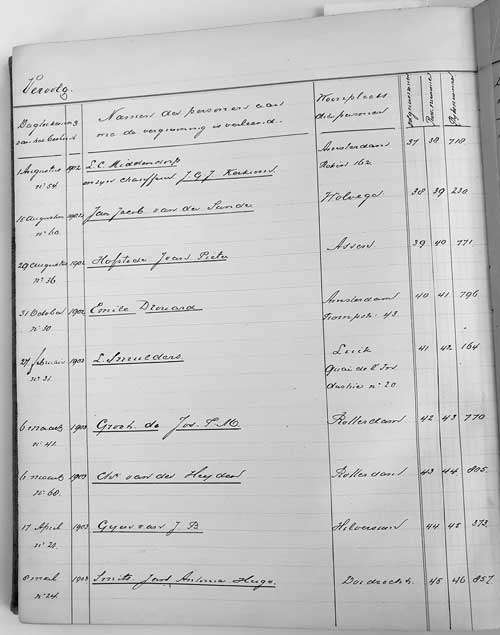 Vervolg.
Dagteekening van het besluit
Namen der personen aan wie de vergunning is verleend.
Woonplaats der personen
1 Augustus 1902 L.C. Middendorp Amsterdam 37 38 718
no 54. Rokin 162
en zijn chauffeur J.G.J. Kerkhoven
15 Augustus 1902 Jan Jacob van der Sande Wolvega 38 39 230
no 60.
29 Augustus 1902 Hofstede Jean Pieter Assen 39 40 771
no 36
31 October 1902 Emile Drouard Amsterdam 40 41 796
no 30. Trompstr. 43.
27 februari 1903 L. Smulders Luik 41 42 164
no 31. Quai de l'In
dustrie no 20
6 maart 1903 Groot. de Jos. P. M. Rotterdam 42 43 770
no 41.
6 maart 1903 Chr van der Heyden Rotterdam 43 44 805.
no 60.
17 April 1903 J. B. Hilversum 44 45 373.
no 21.
8 mei 1903 Smits Jan Antonie Hugo. Dordrecht. 45 46 857
no 24.